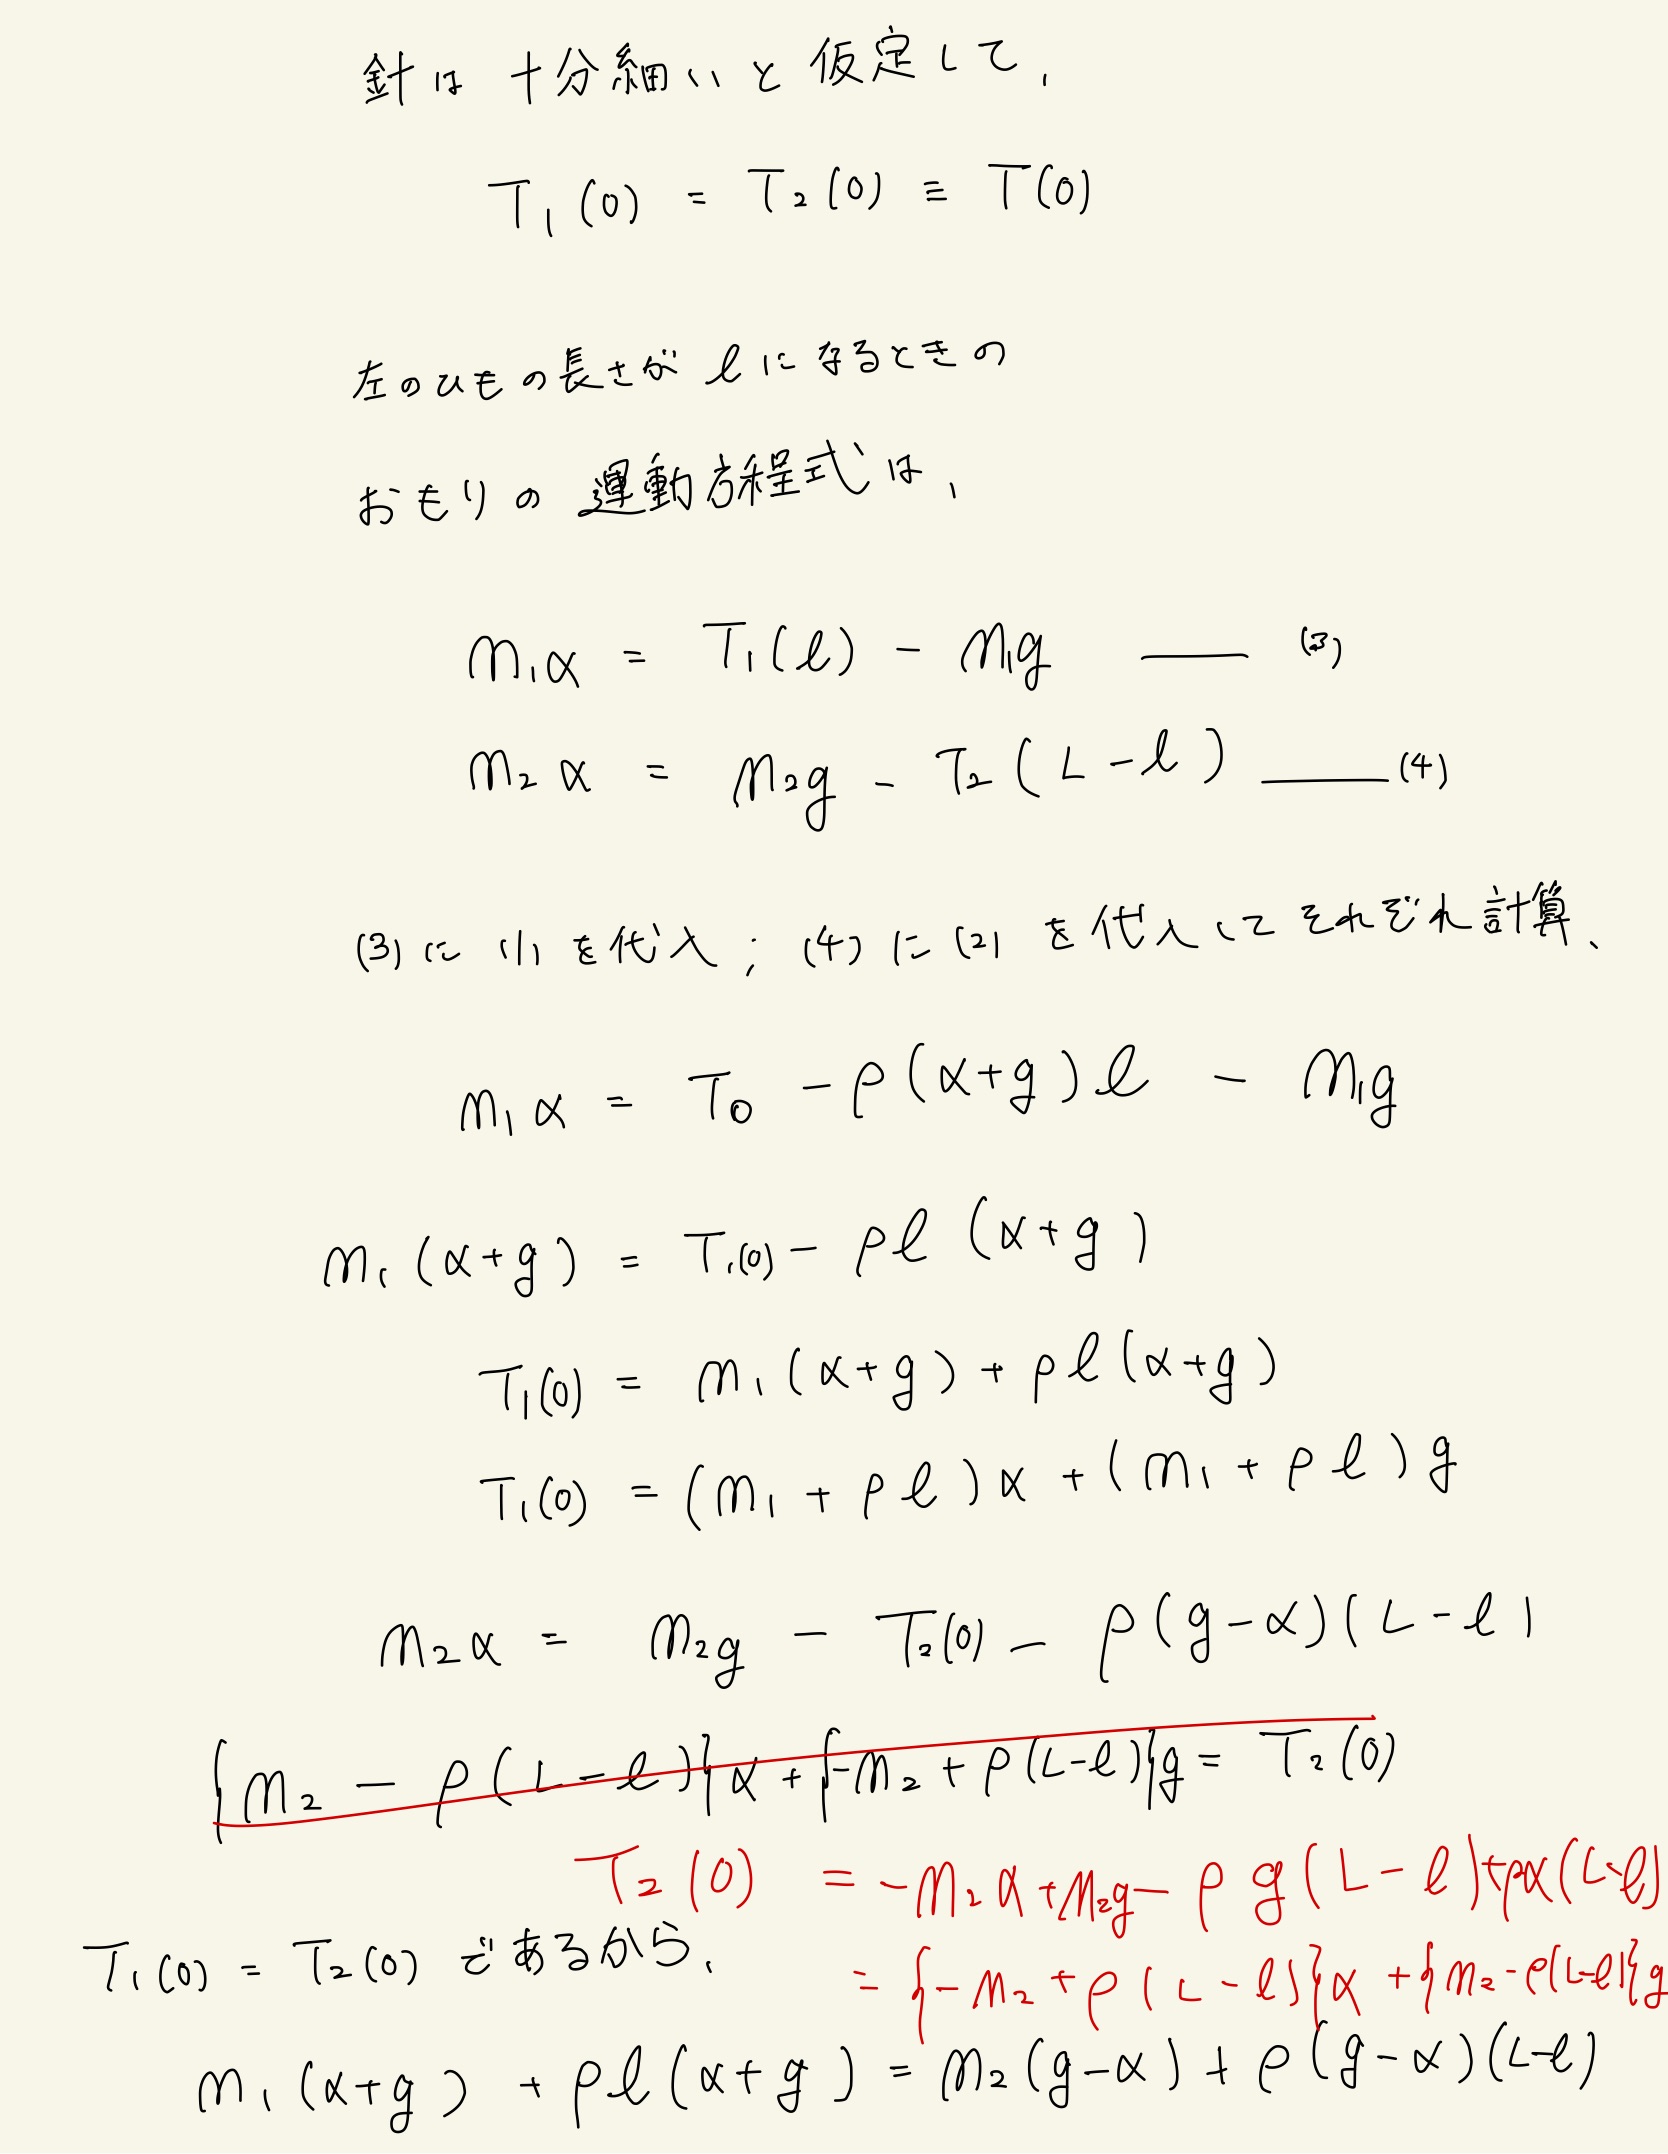 針は十分細いと仮定して、
T₁(0) = T₂(0) ≡ T(0)
左のひもの長さがℓになるときの
おもりの運動方程式は、
m₁α = T₁(ℓ) - m₁g —— (3)
m₂α = m₂g - T₂(L-ℓ) —— (4)
(3)に(1)を代入; (4)に(2)を代入してそれぞれ計算、
m₁α = T₀ - ρ(α+g)ℓ - m₁g
m₁(α+g) = T₁(0) - ρℓ(α+g)
T₁(0) = m₁(α+g) + ρℓ(α+g)
T₁(0) = (m₁+ρℓ)α + (m₁+ρℓ)g
m₂α = m₂g - T₂(0) - ρ(g-α)(L-ℓ)
{m₂ - ρ(L-ℓ)}α + {-m₂ + ρ(L-ℓ)}g = T₂(0)
T₂(0) = -m₂α + m₂g - ρg(L-ℓ) + ρα(L-ℓ)
T₁(0) = T₂(0) であるから、
= {-m₂ + ρ(L-ℓ)}α + {m₂ - ρ(L-ℓ)}g
m₁(α+g) + ρℓ(α+g) = m₂(g-α) + ρ(g-α)(L-ℓ)